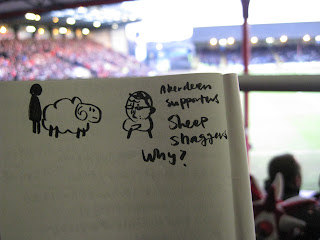 Aberdeen
supporters
Sheep
Shaggers
Why?